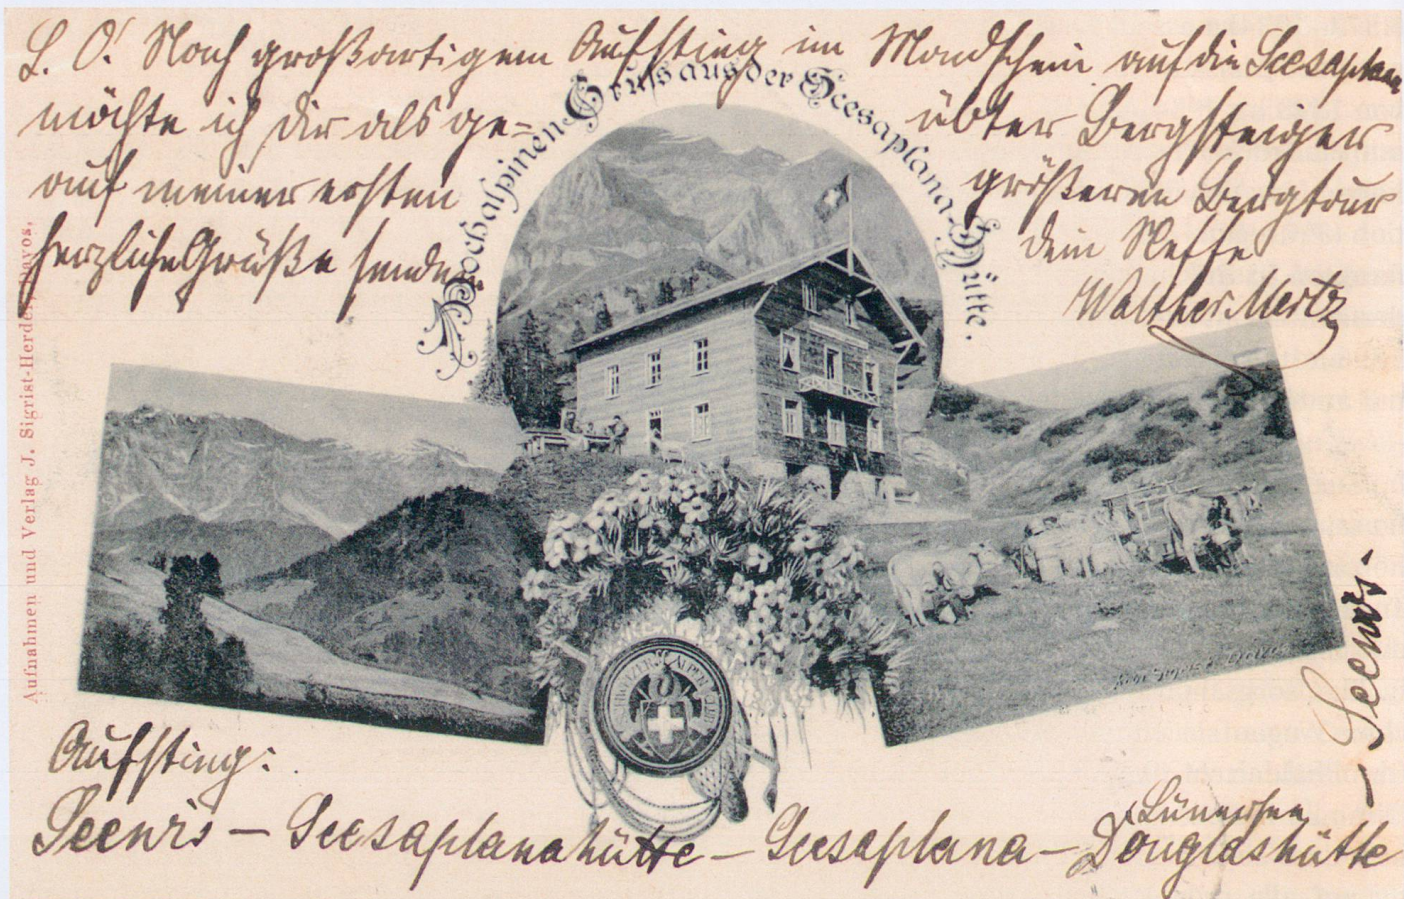 L. O! Nach großartigem Aufstieg im Mondschein auf die Scesaplana
möchte ich Dir als ge-
übter Bergsteiger
auf meiner ersten
größeren Bergtour
herzliche Grüße senden
dein Neffe
Walther Mertz
Hochalpinen Gruss aus der Scesaplana-Hütte.
Aufnahmen und Verlag J. Sigrist-Herder, Davos.
SCHWEIZER ALPEN CLUB
Aufstieg:
Seewis – Scesaplanahütte – Scesaplana – Douglashütte
Lünersee
– Seewis –